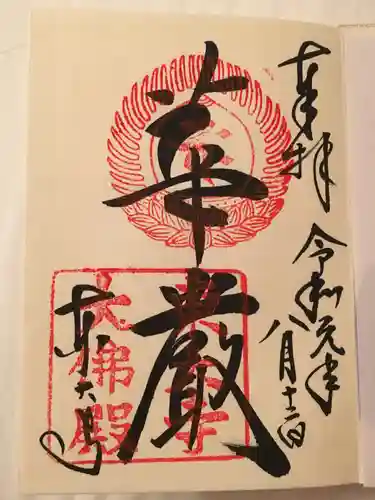 奉拝
令和元年
八月十二日
華嚴
東大寺
大佛殿
東大寺